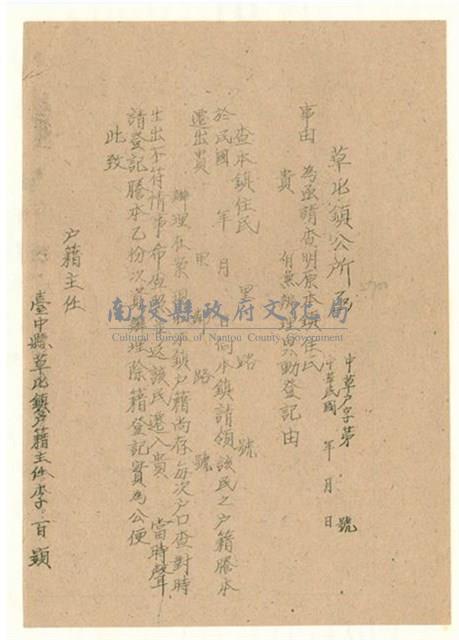 草屯鎮公所函
中草戶字第　　號
中華民國　年　月　日
事由　為函請查明原本鎮住民
貴　　有無辦理異動登記由
查本鎮住民　　里　路　號
於民國　年　月　日向本鎮請領該民之戶籍謄本
遷出貴　里　鄰　路　號
辦理在案現本鎮戶籍尚存每次戶口查對時
生出不符情事希查照該民遷入貴　當時聲
請登記謄本乙份以資辦理除籍登記實為公便
此致
戶籍主任
臺中縣草屯鎮戶籍主任李百顕
南投縣政府文化局
Cultural Bureau of Nantou County Government